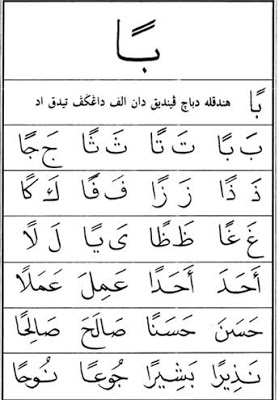 بًا
بًا هندقله دباچ ڤينديق دان الف داڠكڤ تيدق اد
بَ بًا تَ تًا ثَ ثًا جَ جًا
ذَ ذًا زَ زًا فَ فًا كَ كًا
غَ غًا ظَ ظًا يَ يًا لَ لًا
أَحَدَ أَحَدًا عَمِلَ عَمَلًا
حَسَنَ حَسَنًا صَالِحَ صَالِحًا
نَذِيرًا بَشِيرًا جُوعًا نُوحًا